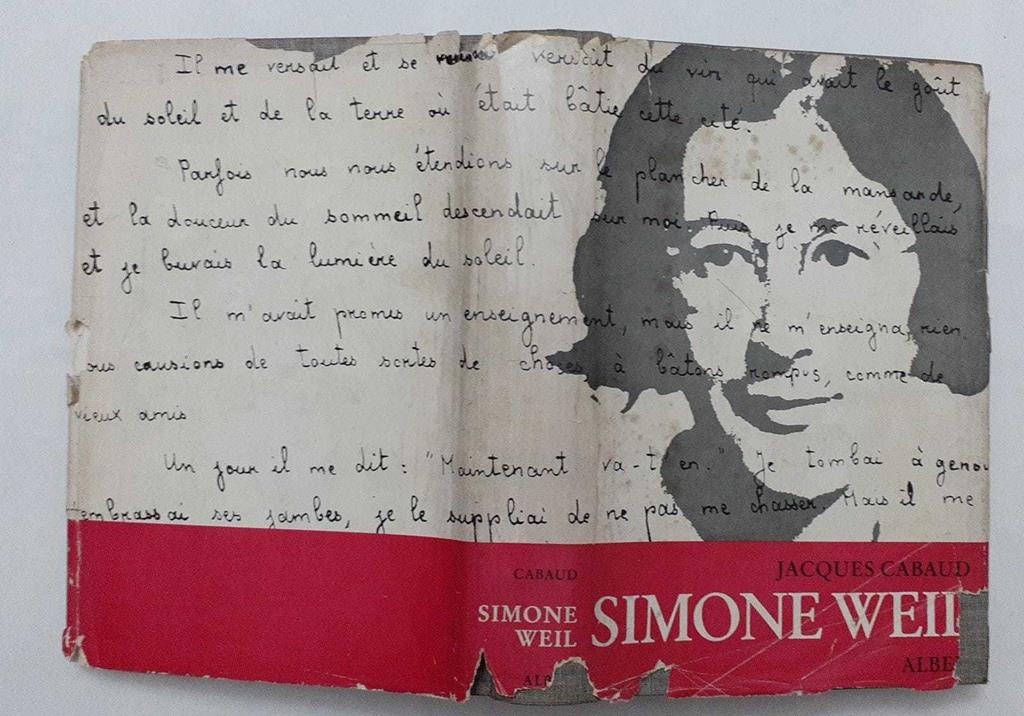 Il me versait et se versait du vin qui avait le goût
du soleil et de la terre où était bâtie cette cité.
Parfois nous nous étendions sur le plancher de la mansarde,
et la douceur du sommeil descendait sur moi. Puis je me réveillais
et je buvais la lumière du soleil.
Il m'avait promis un enseignement, mais il ne m'enseigna rien.
ous causions de toutes sortes de choses à bâtons rompus, comme de
vieux amis
Un jour il me dit : "Maintenant va-t'en." Je tombai à genou
embrassai ses jambes, je le suppliai de ne pas me chasser. Mais il me
CABAUD
SIMONE
WEIL
AL
JACQUES CABAUD
SIMONE WEIL
ALBE